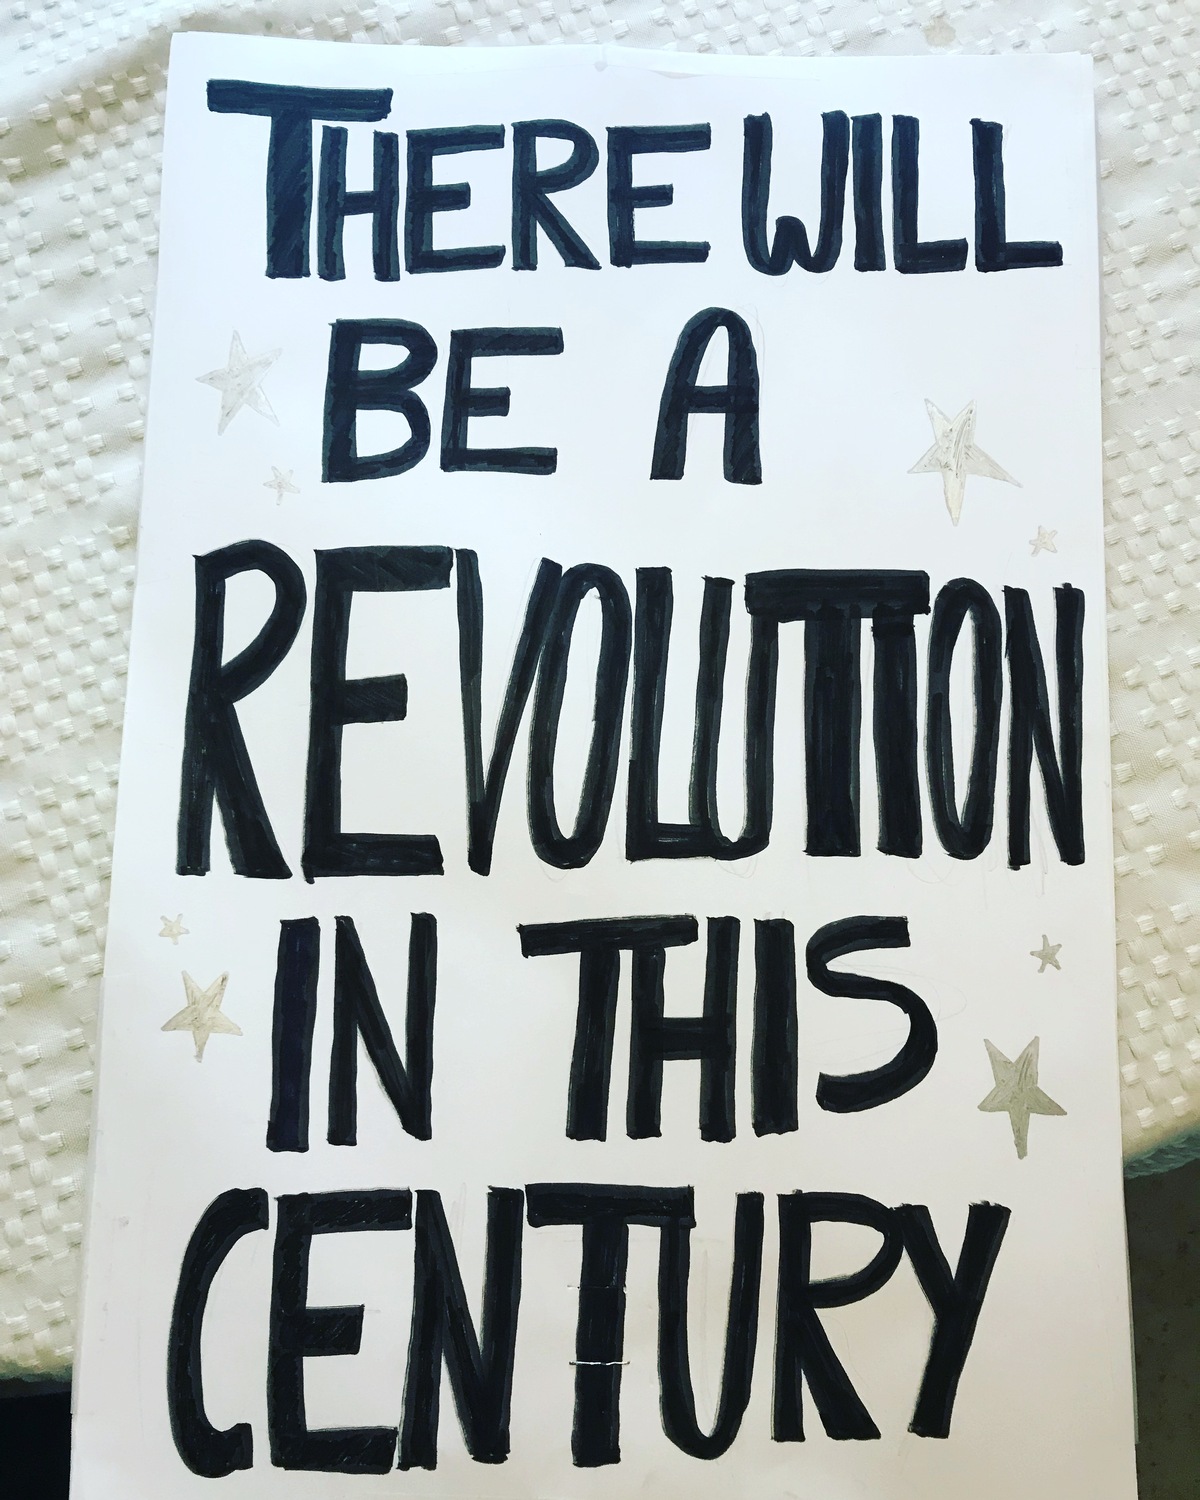 THERE WILL
BE A
REVOLUTION
IN THIS
CENTURY